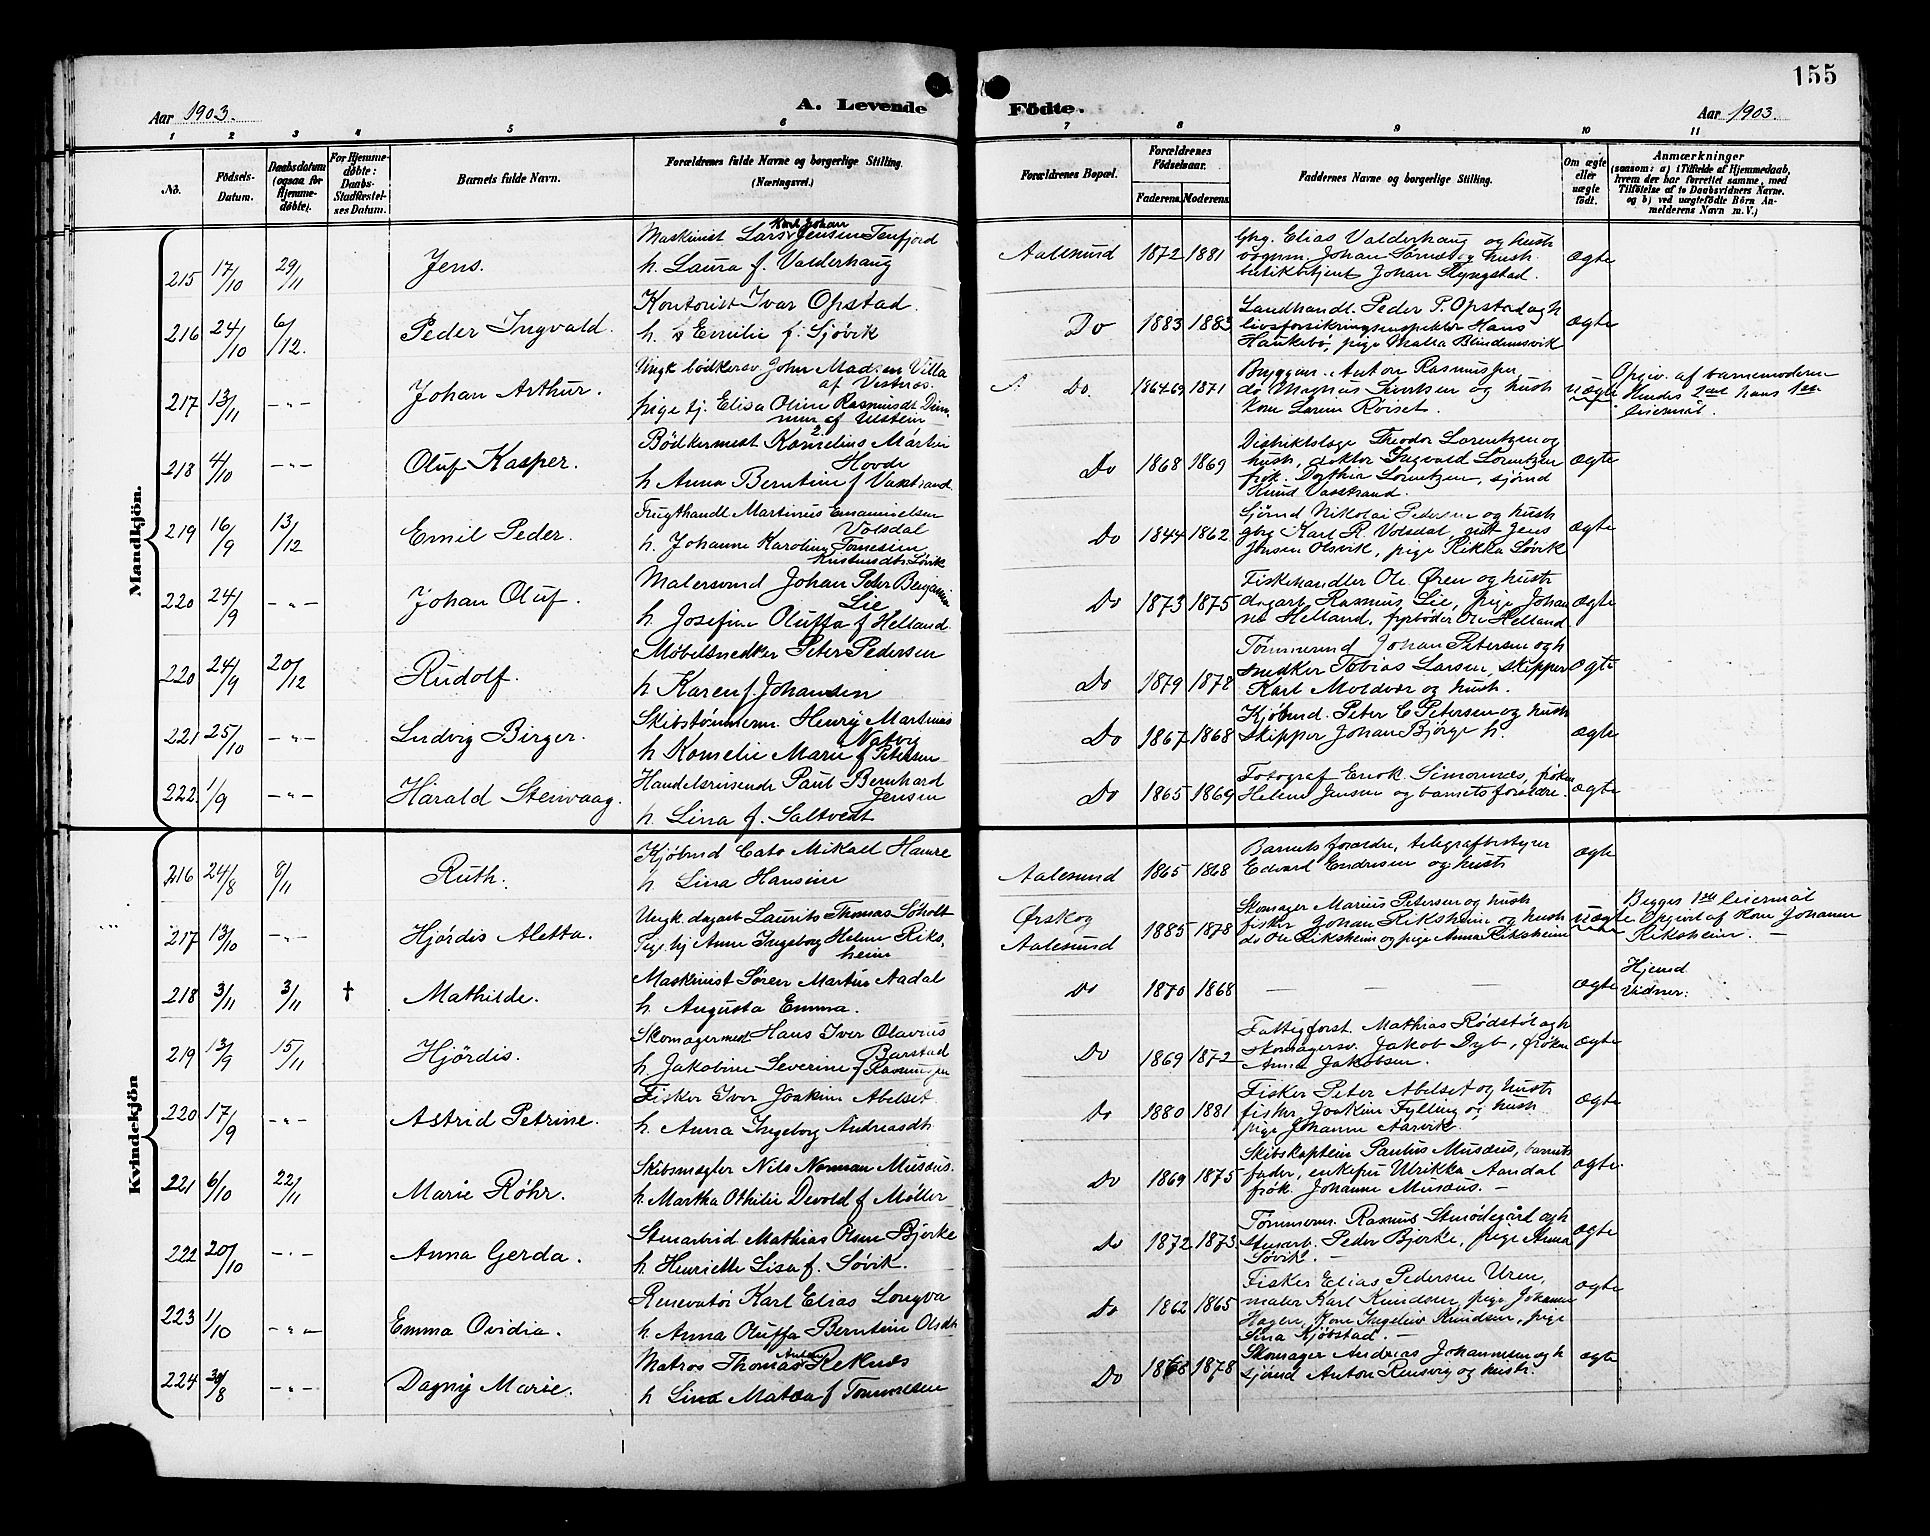 155
Aar 1903.
A. Levende
Födte.
Aar 1903.
1 2 3 4 5 6 7 8 9 10 11
No.
Födsels-Datum.
Daabsdatum (ogsaa for Hjemmedöbte).
For Hjemmedöbte: Daabs-Stadfæstelses Datum.
Barnets fulde Navn.
Forældrenes fulde Navne og borgerlige Stilling. (Næringsvei.)
Forældrenes Bopæl.
Forældrenes Födselsaar.
Faderens. Moderens.
Faddernes Navne og borgerlige Stilling.
Om ægte eller uægte födt.
Anmærkninger
(saasom: a) i Tilfælde af Hjemmedaab, hvem der har forrettet samme, med Tilföielse af to Daabsvidners Navne. og b) ved uægtefödte Börn Anmelderens Navn m. V.)
Mandkjön.
215 17/10 29/11 Jens.
Maskinist Lars Karl Johan Jensen Tenfjord
h. Laura f. Valderhaug
Aalesund 1872 1881
Gbrg. Elias Valderhaug og hustr
Johan
butikbetjent Johan Ryngstad.
ægte
216 24/10 6/12. Peder Ingvald.
Kontorist Ivar Opstad
h. Emilie f. Sjøvik
Do 1883 1883
Landhandl. Peder P. Opstad og h
livsforsikringsinspektør Hans
Haukebø, pige Malla Blindemsvik
ægte
217 13/11 -"- Johan Arthur.
Ungk bødkersv. John Madsen Villa
af Vestnes.
pige tj. Elisa Oline Rasmusdt. Dim
men af Ulstein
Do. 1864-69 1871
Byggm. Anton Rasmussen
do Magnus og hustr
Kone Lorene Rorset.
uægte
Opgiv. af barnemoderen
Hendes 2det hans 1ste
leiermål
218 4/10 -"- Oluf Kasper.
Bødkermest Kornelius Martin
Hovde
h Anna Berntine f Vaxtrand
Do 1868 1869
Distriktslæge Theodor Lorentzen og
hustr, doktor Ingvald Lorentzen
frøk. Dorthea Lorentzen, sjømd
Knud Vasstrand.
ægte
219 16/9 13/12 Emil Peder.
Frugthandl Martinus Emanuelsen
Volsdal
h. Johanne Karoline Tønnesen
Do 1844 1862
Sjømd Nikolai Pedersen og hustr
gbrg Karl R. Volsdal, Jens
Jensen Olsvik, pige Rikka Søvik
ægte
220 24/9 -"- Johan Oluf.
Malersvend Johan Peter Benjamin
Lie
h. Josefine Oluffa f Helland.
Do 1873 1875
Fiskehandler Ole Øren og hustr
dagarb Rasmus Lie, pige Johan
ne Helland, fyrbøder Ole Helland.
ægte
220 24/9 20/12 Rudolf.
Møbelsnedker Peter Pedersen
h Karen f. Johansen
Do 1879 1878
Tømmermd Johan Petersen og h
snedker Tobias Larsen, skipper
Karl Moldvær og hustr.
ægte
221 25/10 -"- Ludvig Birger.
Skibstømmerm. Henrij Martinus
Natvig
h Kornelie Marie f Petersen
Do 1867 1868
Kjøbmd. Peter C Petersen og hustr
skipper Johan Bjørge h.
ægte
222. 1/9 -"- Harald Stenvaag.
Handelsreisende Paul Bernhard
Jensen
h. Lina f. Saltvedt
Do 1865 1869
Fotograf Enok Simonnæs, frøken
Helene Jensen og barnets forældre.
ægte
Kvindekjön
216 24/8 8/11 Ruth.
Kjøbmd Cato Mikael Hamre
h. Lina Hansine
Aalesund 1865 1868
Barnets forældre, telegrafbestyrer
Edvard Endresen og hustr
ægte
217 13/10 -"- Hjördis Aletta.
Ungk. dagarb Laurits Thomas Søholt
Pige tj Anne Ingeborg Helene Riks,
heim
Ørskog
Aalesund 1885 1878
Skomager Marius Petersen og hustr
fisker Johan Riksheim og hustr
do Ole Riksheim og pige Anna Riksheim
uægte
Begges 1ste leiermål
Opgivet af Kone Johanne
Riksheim. -
218 3/11 3/11 † Mathilde.
Maskinist Søren Martin Aadal
h. Augusta Emma.
Do 1870 1868
— — —
ægte
Hjemd
Vidner:
219 13/9 15/11 Hjördis.
Skomagermest Hans Iver Olavius
Barstad
h. Jakobine Severine f Rasmussen
Do 1869 1872
Fattigforst. Mathias Rødstøl og h
skomagersv. Jakob Dyb, frøken
Anna Jakobsen.
ægte
220 17/9 -"- Astrid Petrine.
Fisker Iver Joakim Abelset
h. Anna Ingeborg Andreasdt.
Do 1880 1881
Fisker Peter Abelset og hustr
fisker Joakim Fylling og hustr
pige Johanne Aarvik.
ægte
221 6/10 22/11 Marie Röhr.
Skibsmægler Nils Norman Musæus.
h. Martha Othilie Devold f Møller
Do 1869 1875
Skibskaptein Paulus Musæus, barnets
fader, enkefru Ulrikka Aandal
frøk. Johanne Musæus. -
ægte.
222 20/10 -"- Anna Gerda.
Stenarbeid Mathias Olsen Bjørke
h. Henriette Lisa f. Søvik.
Do 1872 1873
Tømmerm. Rasmus Stenødegård og h
stenarb. Peder Bjørke, pige Anna
Søvik. —
ægte
223 1/10 -"- Emma Ovidia.
Renovatør Karl Elias Longva
h Anna Oluffa Berntine Olsdtr
Do 1862 1865
Fisker Elias Pedersen Uren,
maler Karl Knudsen, pige Johanne
Hagen, Kone Ingeleiv Knudsen, pige
Lina Kjøbstad. —
ægte
224 30/8 -"- Dagny Marie.
Matros Thomas Anton Reknes
h Lina Matea f Tønnesen
Do 1868 1878
Skomager Andreas Johannesen og h
sjømd Anton Rensvig og hustr.
ægte